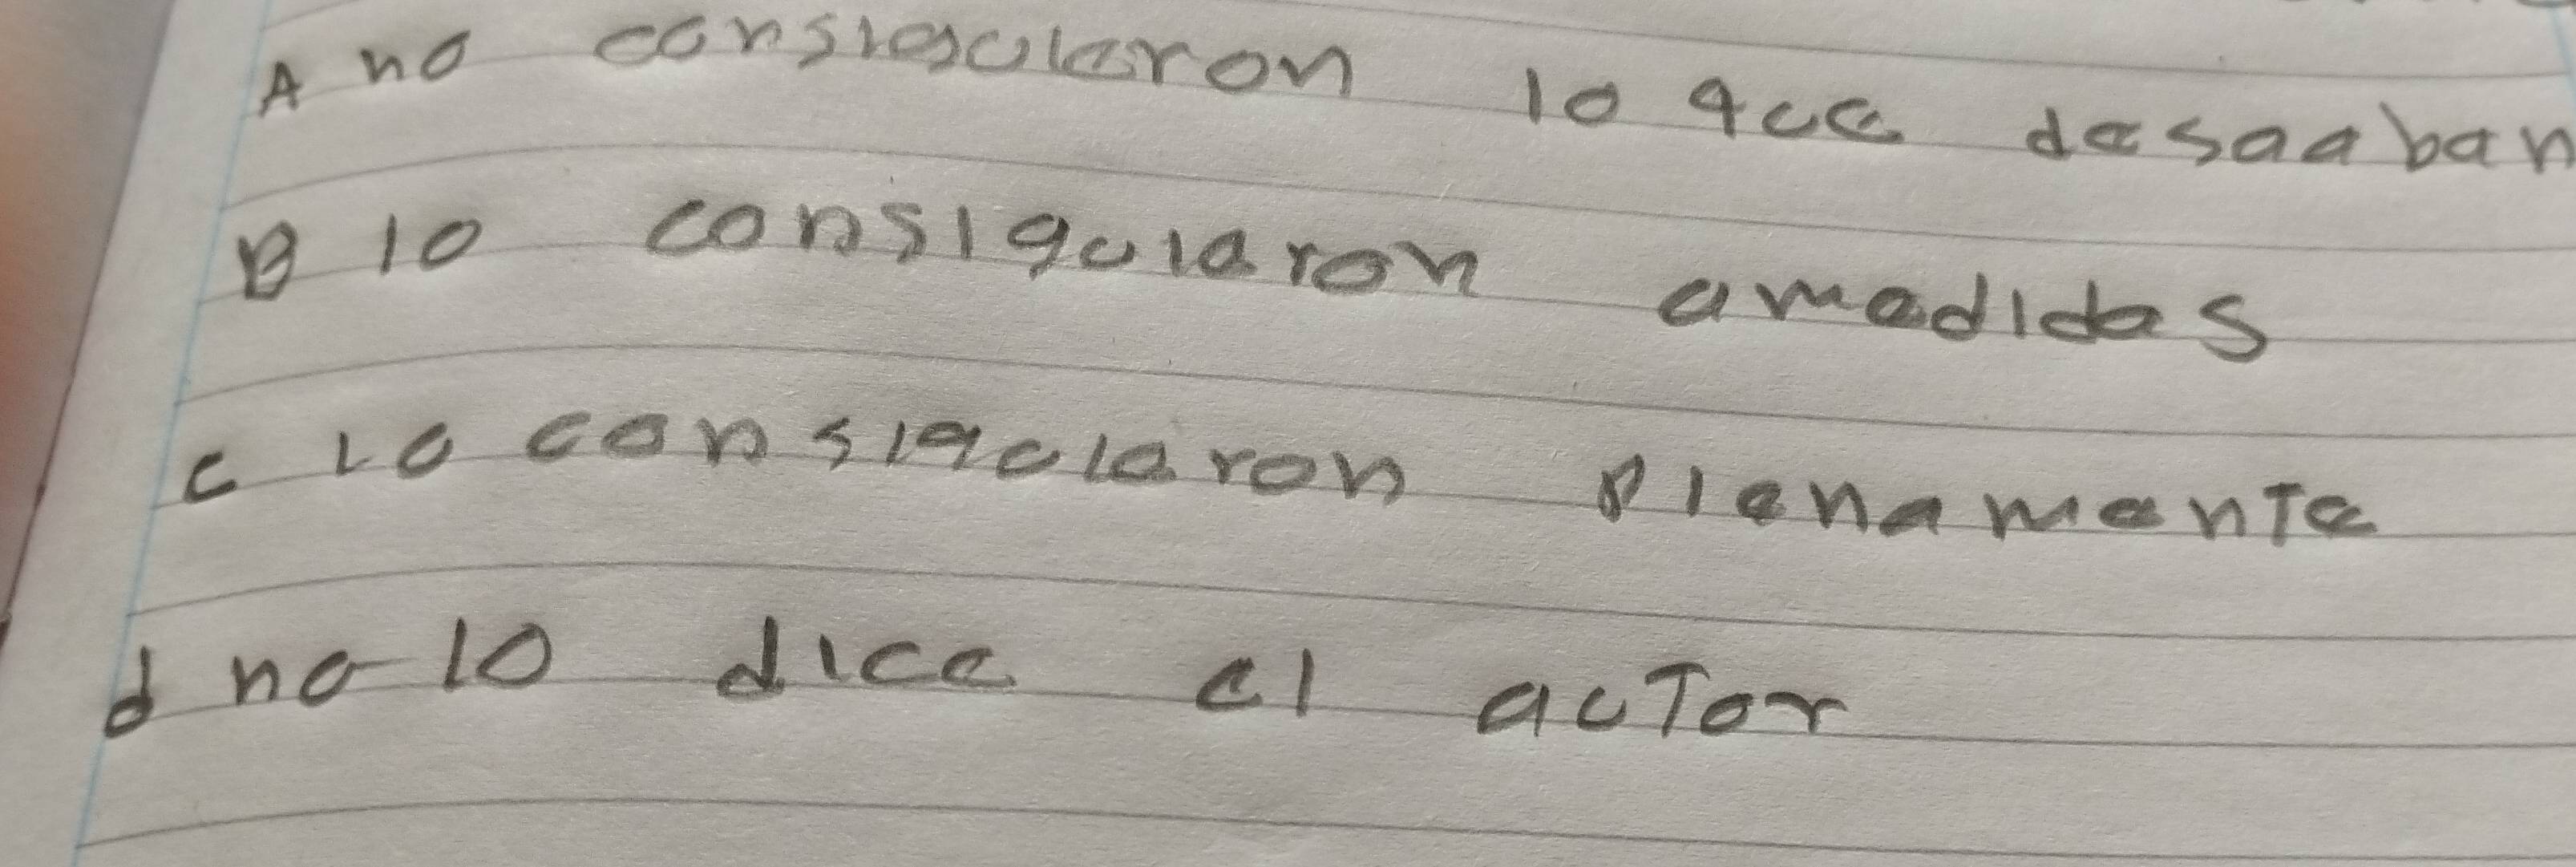 A no consiguieron lo que deseaban
B lo consiguieron amedidas
C lo consiguieron Plenamente
d no lo dice el actor